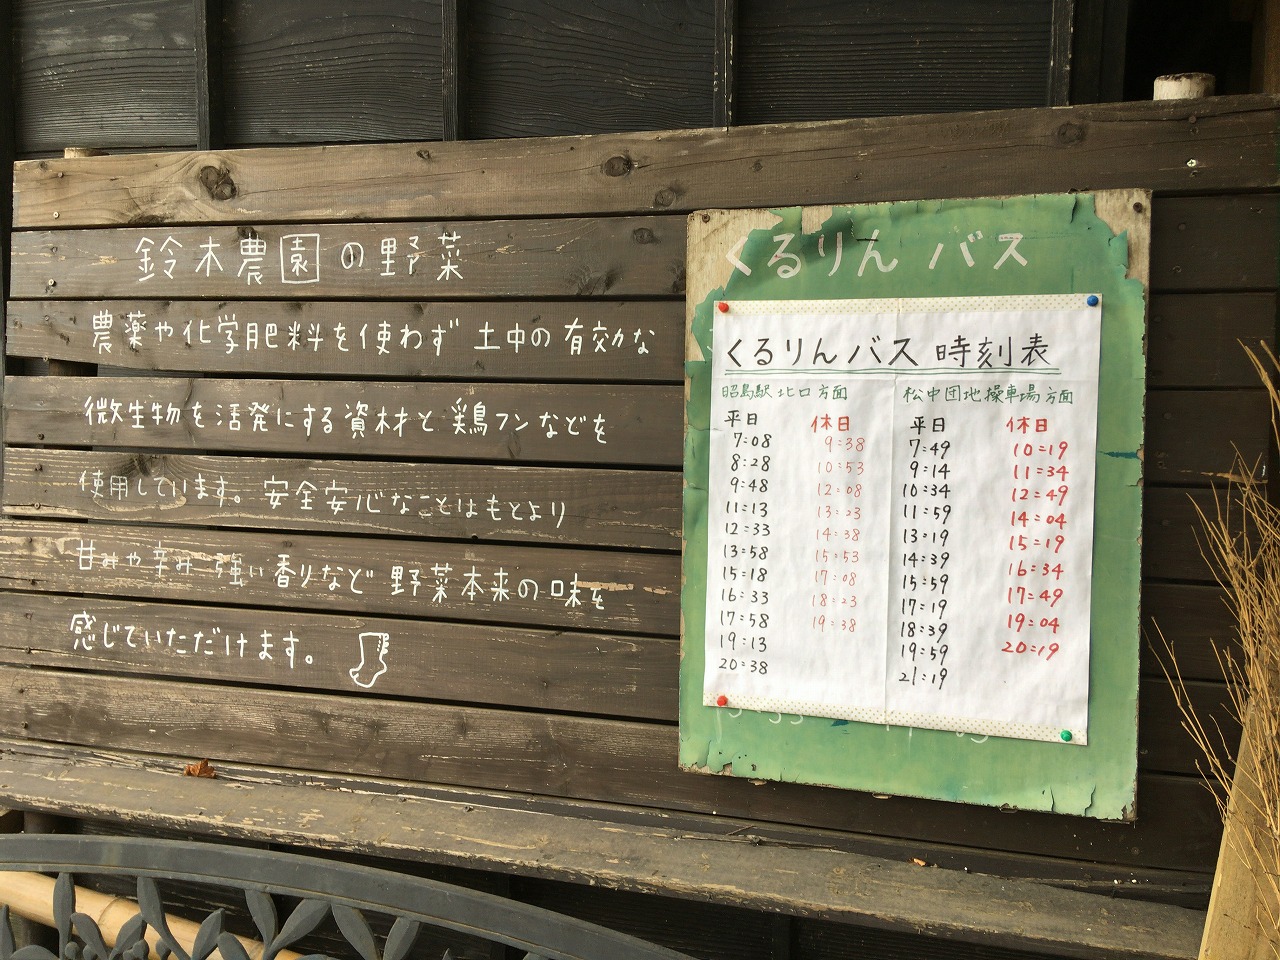 鈴木農園の野菜
農薬や化学肥料を使わず 土中の有効な
微生物を活発にする資材と鶏フンなどを
使用しています。安全安心なことはもとより
甘みや辛み 強い香りなど 野菜本来の味を
感じていただけます。
くるりん バス
くるりんバス 時刻表
昭島駅 北口方面 松中団地操車場方面
平日 休日 平日 休日
7:08 9:38 7:49 10:19
8:28 10:53 9:14 11:34
9:48 12:08 10:34 12:49
11:13 13:23 11:59 14:04
12:33 14:38 13:19 15:19
13:58 15:53 14:39 16:34
15:18 17:08 15:59 17:49
16:33 18:23 17:19 19:04
17:58 19:38 18:39 20:19
19:13 19:59
20:38 21:19